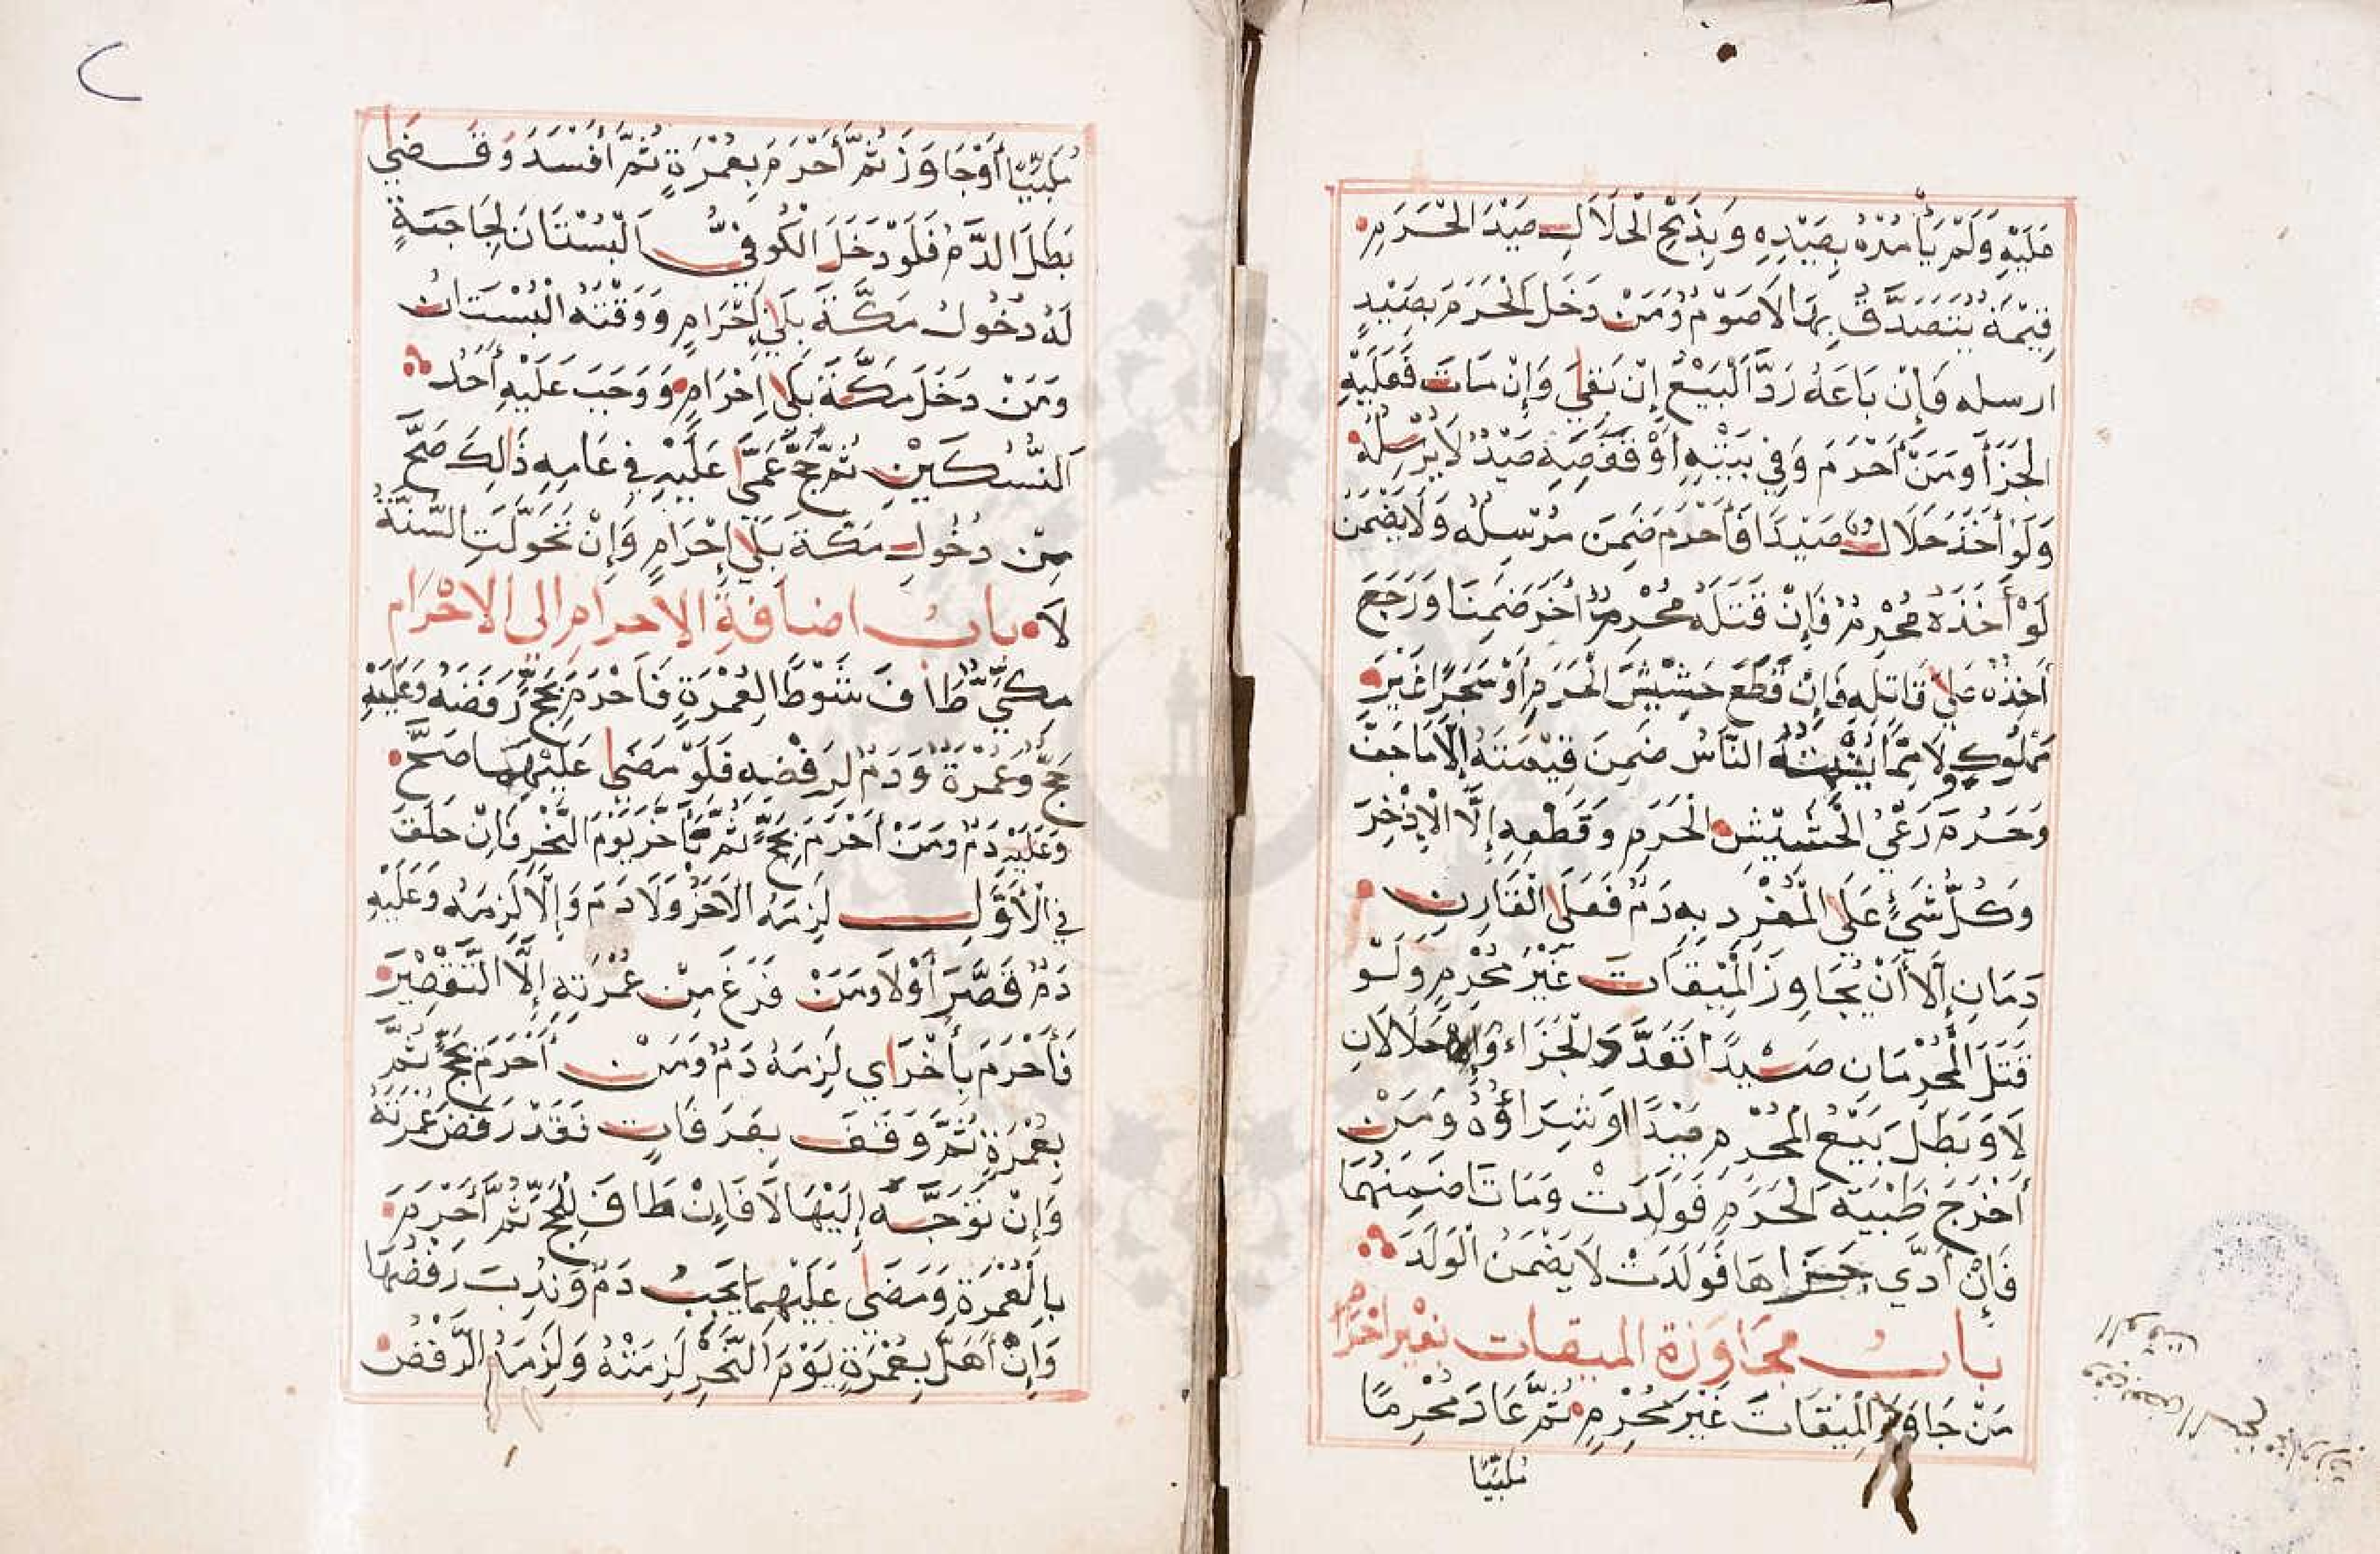 عَلَيْهِ وَلَمْ يَأْمُرْهُ بِصَيْدِهِ وَبِذَبْحِ الْحَلَالِ صَيْدَ الْحَرَمِ
قِيْمَةٌ يَتَصَدَّقُ بِهَا لَا صَوْمٌ وَمَنْ دَخَلَ الْحَرَمَ بِصَيْدٍ
ارسله فَإِنْ بَاعَهُ رَدَّ الْبَيْعَ إِنْ بَقِيَ وَإِنْ مَاتَ فَعَلَيْهِ
الجَزَآ وَمَنْ أَحْرَمَ وَفِي بَيْتِهِ أَوْ قَفَصِهِ صَيْدٌ لَا يُرْسِلُهُ
وَلَوْ أَخَذَ حَلَالٌ صَيْدًا فَأَحْرَمَ ضَمِنَ مُرْسِلُه وَلَا يَضْمَنُ
لَوْ أَخَذَهُ مُحْرِمٌ فَإِنْ قَتَلَهُ مُحْرِمٌ أَخَرُ ضَمِنَا وَرَجَعَ
أَخِذُهُ عَلَى قَاتِلِهِ فَإِنْ قَطَعَ حَشِيْشَ الْحَرَمِ أَوْ شَجَرًا غَيْرَ
مَمْلُوكٍ وَلَا مِمَّا يُنْبِتُهُ النَّاسُ ضَمِنَ قِيْمَتَهُ إِلَّا مَا جَفَّ
وَحَرُمَ رَعْيُ الْحَشِيْشِ الْحَرَمِ وَقَطْعِهِ إِلَّا الْإِذْخِرَ
وَكُلُّ شَيْءٍ عَلَى الْمُفْرِدِ بِهِ دَمٌ فَعَلَى الْقَارِنِ
دَمَانِ إِلَّا أَنْ يُجَاوِزَ الْمِيْقَاتَ غَيْرَ مُحْرِمٍ وَلَوْ
قَتَلَ الْمُحْرِمَانِ صَيْدًا تَعَدَّدَ الْجَزَاء وَلَو حَلَالَانِ
لَا وَبَطَلَ بَيْعُ الْمُحْرِمِ صَيْدًا اوَ شِرَاؤُهُ وَمَنْ
أَخْرَجَ ظَبْيَةَ الْحَرَمِ فَوَلَدَتْ وَمَاتَا ضَمِنَهُمَا
فَإِنْ أَدَّى جَزَاهَا فَوَلَدَتْ لَا يَضْمَنُ الْوَلَدَ
بابُ مجَاوَزة الميقات بغَيْر احْرَام
مَنْ جَاوَزَ الْمِيْقَاتَ غَيْرَ مُحْرِمٍ ثُمَّ عَادَ مُحْرِمًا
مُلَبِّيًا
مُلَبِّيًا أَوْ جَاوَزَ ثُمَّ أَحْرَمَ بِعُمْرَةٍ ثُمَّ أَفْسَدَ وَقَضَى
بَطَلَ الدَّمُ فَلَوْ دَخَلَ الْكُوفِيُّ الْبُسْتَانَ لِحَاجَةٍ
لَهُ دُخُولُ مَكَّةَ بِلَا إِحْرَامٍ وَوَقْتُهُ الْبُسْتَانُ
وَمَنْ دَخَلَ مَكَّةَ بِلَا إِحْرَامٍ وَوَجَبَ عَلَيْهِ أَحَدُ
النُّسُكَيْنِ ثُمَّ حَجَّ عَمَّا عَلَيْهِ فِي عَامِهِ ذَلِكَ صَحَّ
مِنْ دُخُولِ مَكَّةَ بِلَا إِحْرَامٍ وَإِنْ تَحَوَّلَتِ السَّنَةُ
لَا بابُ اضافَةِ الاحرامِ الى الاحْرَام
مَكِّيٌّ طَافَ شَوْطًا لِعُمْرَةٍ فَأَحْرَمَ بِحَجٍّ رَفَضَهُ وَعَلَيْهِ
حَجٌّ وَعُمْرَةٌ وَدَمٌ لِرَفْضِهِ فَلَوْ مَضَى عَلَيْهِمَا صَحَّ
وَعَلَيْهِ دَمٌ وَمَنْ أَحْرَمَ بِحَجٍّ ثُمَّ بَأَخَرَ يَوْمَ النَّحْرِ فَإِنْ حَلَقَ
فِي الْأَوَّلِ لَزِمَهُ الْأَخَرُ وَلَا دَمَ وَإِلَّا لَزِمَهُ وَعَلَيْهِ
دَمٌ قَصَّرَ أَوْ لَا وَمَنْ فَرَغَ مِنْ عُمْرَتِهِ إِلَّا التَّقْصِيْرَ
فَأَحْرَمَ بِأُخْرَاي لَزِمَهُ دَمٌ وَمَنْ أَحْرَمَ بِحَجٍّ ثُمَّ
بِعُمْرَةٍ ثُمَّ وَقَفَ بِعَرَفَاتٍ فَقَدْ رَفَضَ عُمْرَتَهُ
وَإِنْ تَوَجَّهَ إِلَيْهَا لَا فَإِنْ طَافَ لِلْحَجِّ ثُمَّ أَحْرَمَ
بِالْعُمْرَةِ وَمَضَى عَلَيْهِمَا يَجِبُ دَمٌ وَنُدِبَ رَفْضُهَا
وَإِنْ أَهَلَّ بِعُمْرَةٍ يَوْمَ النَّحْرِ لَزِمَتْهُ وَلَزِمَهُ الرَّفْضُ